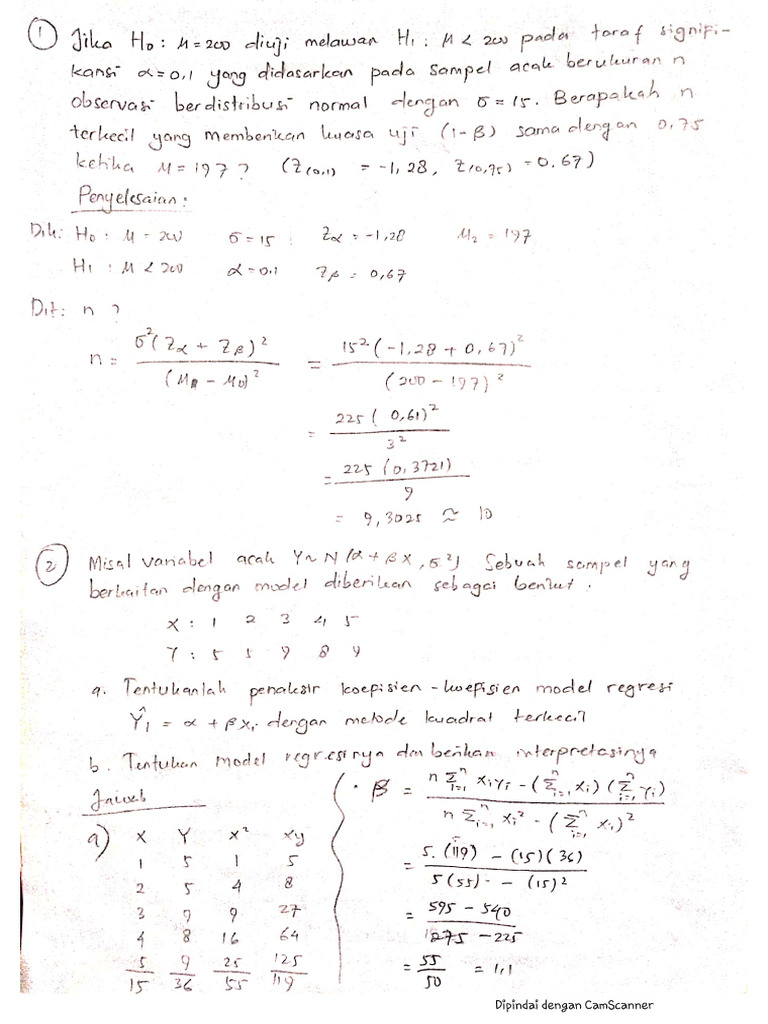 1 Jika H0 : μ = 200 diuji melawan H1 : μ < 200 pada taraf signifi-
kansi α = 0,1 yang didasarkan pada sampel acak berukuran n
observasi berdistribusi normal dengan σ = 15. Berapakah n
terkecil yang memberikan kuasa uji (1-β) sama dengan 0,75
ketika μ = 197 ? (Z(0,1) = -1,28, Z(0,75) = 0.67)
Penyelesaian :
Dik: H0 : μ = 200 σ = 15 Zα = -1,28 μ2 = 197
H1 : μ < 200 α = 0.1 Zβ = 0,67
Dit: n ?
n = σ²(Zα + Zβ)² / (μ - μ0)² = 15² (-1,28 + 0,67)² / (200 - 197)²
= 225 (0,61)² / 3²
= 225 (0,3721) / 9
= 9,3025 ≈ 10
2 Misal variabel acak Y ~ N (α + βX, σ²) Sebuah sampel yang
berkaitan dengan model diberikan sebagai berikut :
X : 1 2 3 4 5
Y : 5 5 9 8 9
a. Tentukanlah penaksir koepisien-koefisien model regresi
Ŷi = α + βXi dengan metode kuadrat terkecil
b. Tentukan model regresinya dan berikan interpretasinya
Jawab
a) X Y X² XY
1 5 1 5
2 5 4 8
3 9 9 27
4 8 16 64
5 9 25 125
15 36 55 119
· β = n Σⁿᵢ₌₁ XiYi - (Σⁿᵢ₌₁ Xi) (Σⁿᵢ₌₁ Yi) / n Σⁿᵢ₌₁ Xi² - (Σⁿᵢ₌₁ Xi)²
= 5. (119) - (15)(36) / 5(55) - (15)²
= 595 - 540 / 275 - 225
= 55 / 50 = 1,1
Dipindai dengan CamScanner